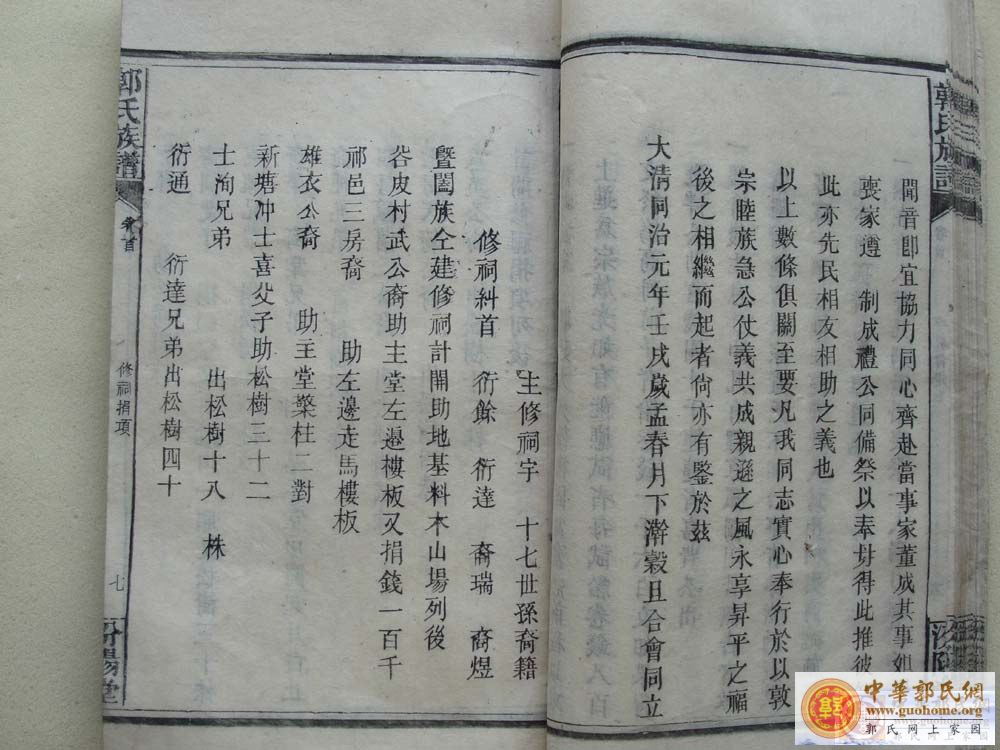 聞音卽宜協力同心齊赴當事家董成其事如
喪家遵 制成禮公同備祭以奉毋得此推彼
此亦先民相友相助之義也
以上數條俱關至要凡我同志實心奉行於以敦
宗睦族急公仗義共成親遜之風永享昇平之福
後之相繼而起者尙亦有鑒於茲
大淸同治元年壬戌歲孟春月下澣穀旦合會同立
主修祠宇 十七世孫裔籍
修祠糾首 衍餘 衍達 裔瑞 裔煜
曁闔族仝建修祠計開助地基料木山場列後
谷皮村武公裔助主堂左邉樓板又捐錢一百千
祁邑三房裔 助左邊走馬樓板
雄衣公裔 助主堂藥柱二對
新塘冲士喜父子助松樹三十二
士洵兄弟 出松樹十八 株
衍通 衍達兄弟出松樹四十
郭氏族譜
卷首
修祠捐項
七
汾陽堂
郭氏族譜
中華郭氏網
www.guohome.org
郭氏网上家园